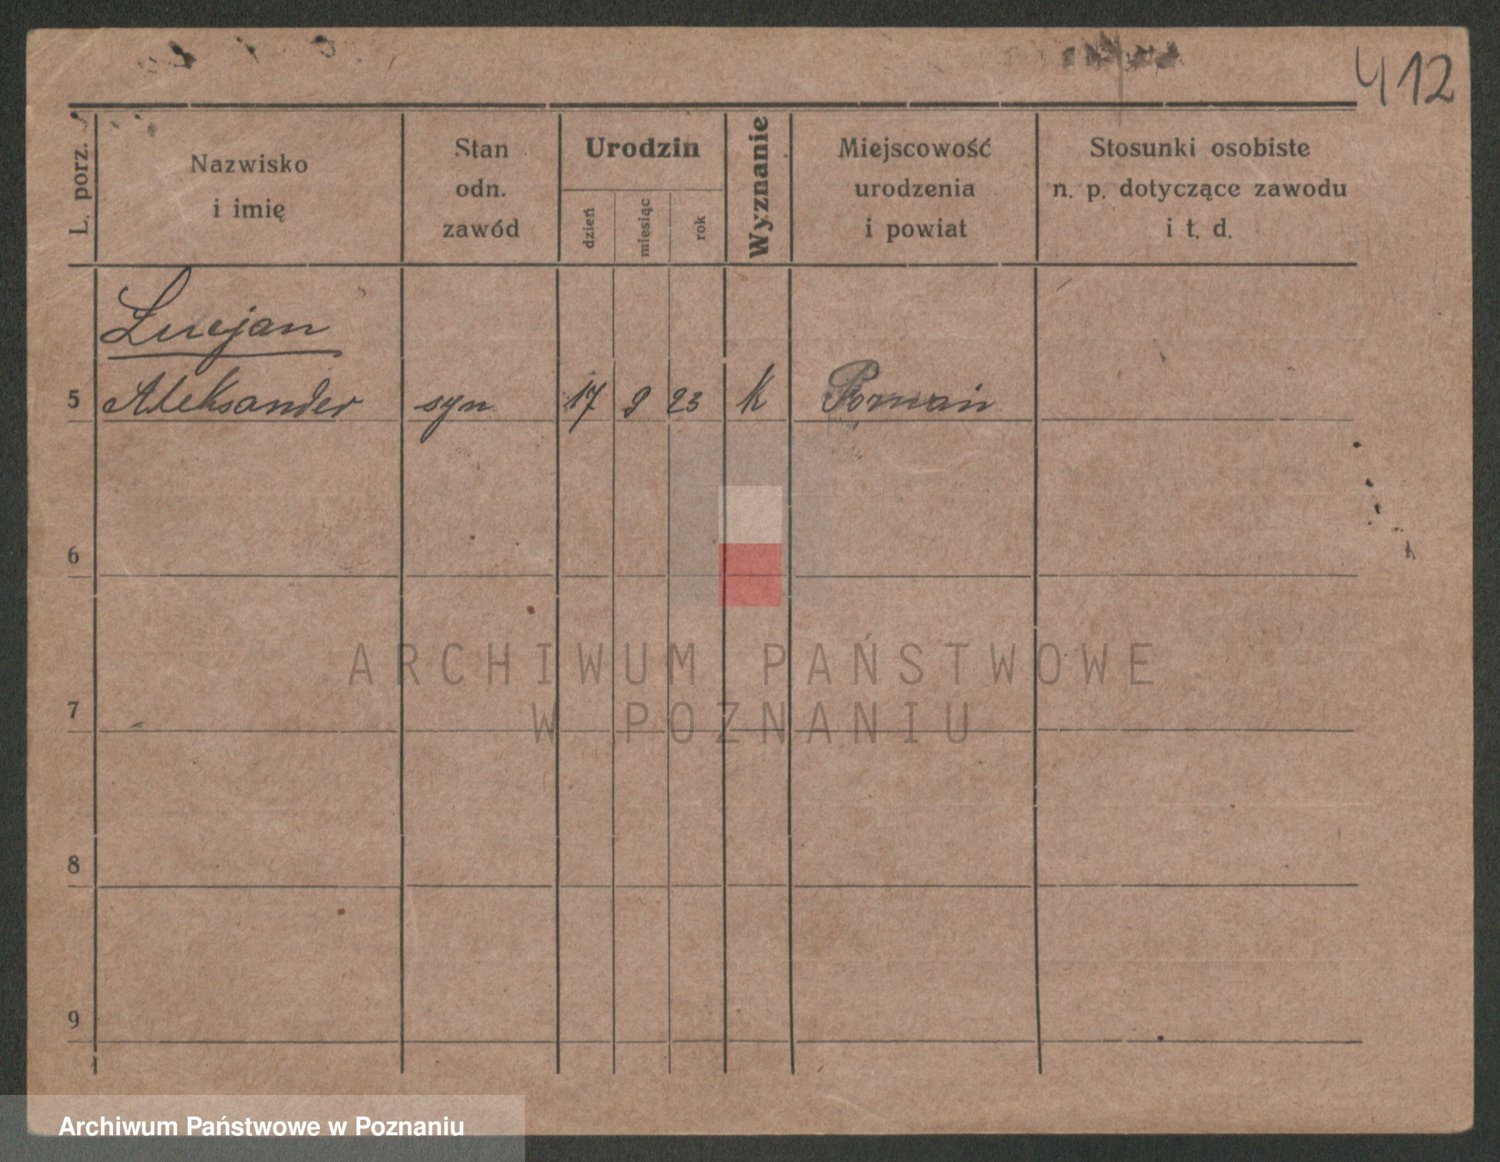 412
L. porz.
Nazwisko
i imię
Stan
odn.
zawód
Urodzin
dzień
miesiąc
rok
Wyznanie
Miejscowość
urodzenia
i powiat
Stosunki osobiste
n. p. dotyczące zawodu
i t. d.
Lucjan
5 Aleksander syn 17 9 23 k Poznań
6
7
8
9
ARCHIWUM PAŃSTWOWE
W POZNANIU
Archiwum Państwowe w Poznaniu